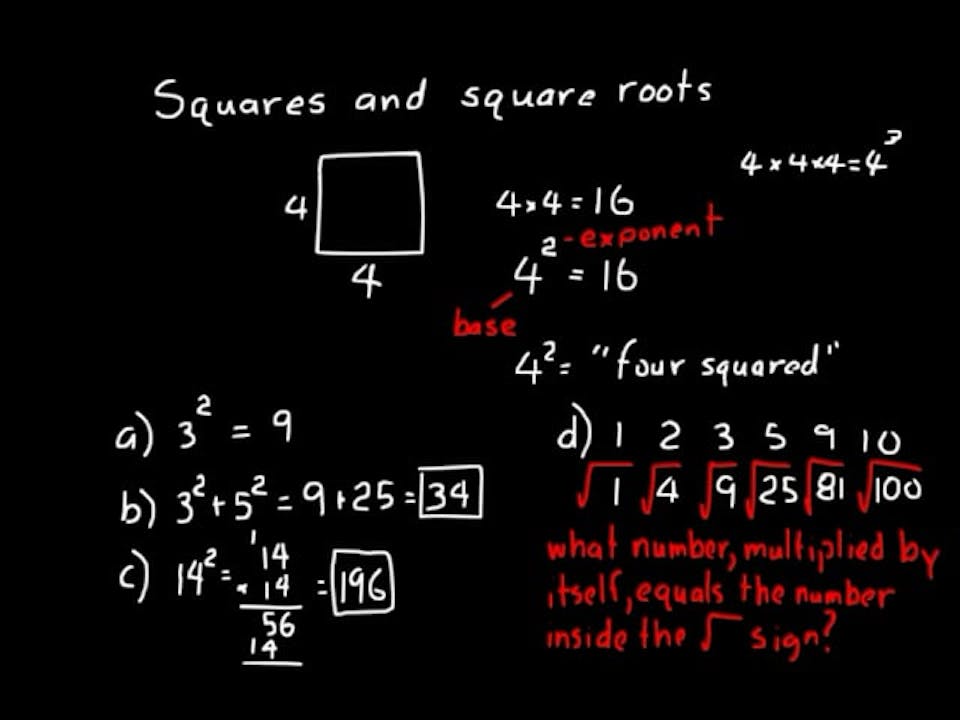 Squares and square roots
4 × 4 × 4 = 4³
4
4 × 4 = 16
4² - exponent
4² = 16
4
base
4² = "four squared"
a) 3² = 9
b) 3² + 5² = 9 + 25 = 34
c) 14² = 14 = 196
1
× 14
56
14
d) 1 2 3 5 9 10
√1 √4 √9 √25 √81 √100
what number, multiplied by
itself, equals the number
inside the √ sign?